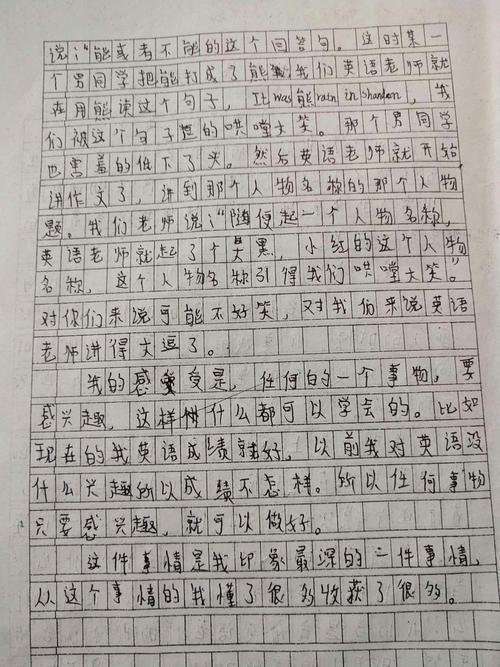 说:"能或者不能的这个回答句。这时某一
个男同学把能打成了熊,我们英语老师就
在用熊读这个句子,It was熊rain in shandon,我
们被这个句子逗的哄堂大笑。那个男同学
也害羞的低下了头。然后英语老师就开始
讲作文了,讲到那个人物名称的那个人物
题。我们老师说:"随便起一个人物名称,
英语老师就起了个昊黑,小红的这个人物
名称,这个人物名称引得我们哄堂大笑。"
对你们来说可能不好笑,对我们来说英语
老师讲得太逗了。
我的感受是,任何的一个事物,要
感兴趣,这样什么都可以学会的。比如
现在的我英语成绩就好,以前我对英语没
什么兴趣所以成绩不怎样。所以任何事物
只要感兴趣,就可以做好。
这件事情是我印象最深的一件事情,
从这个事情的我懂了很多收获了很多。